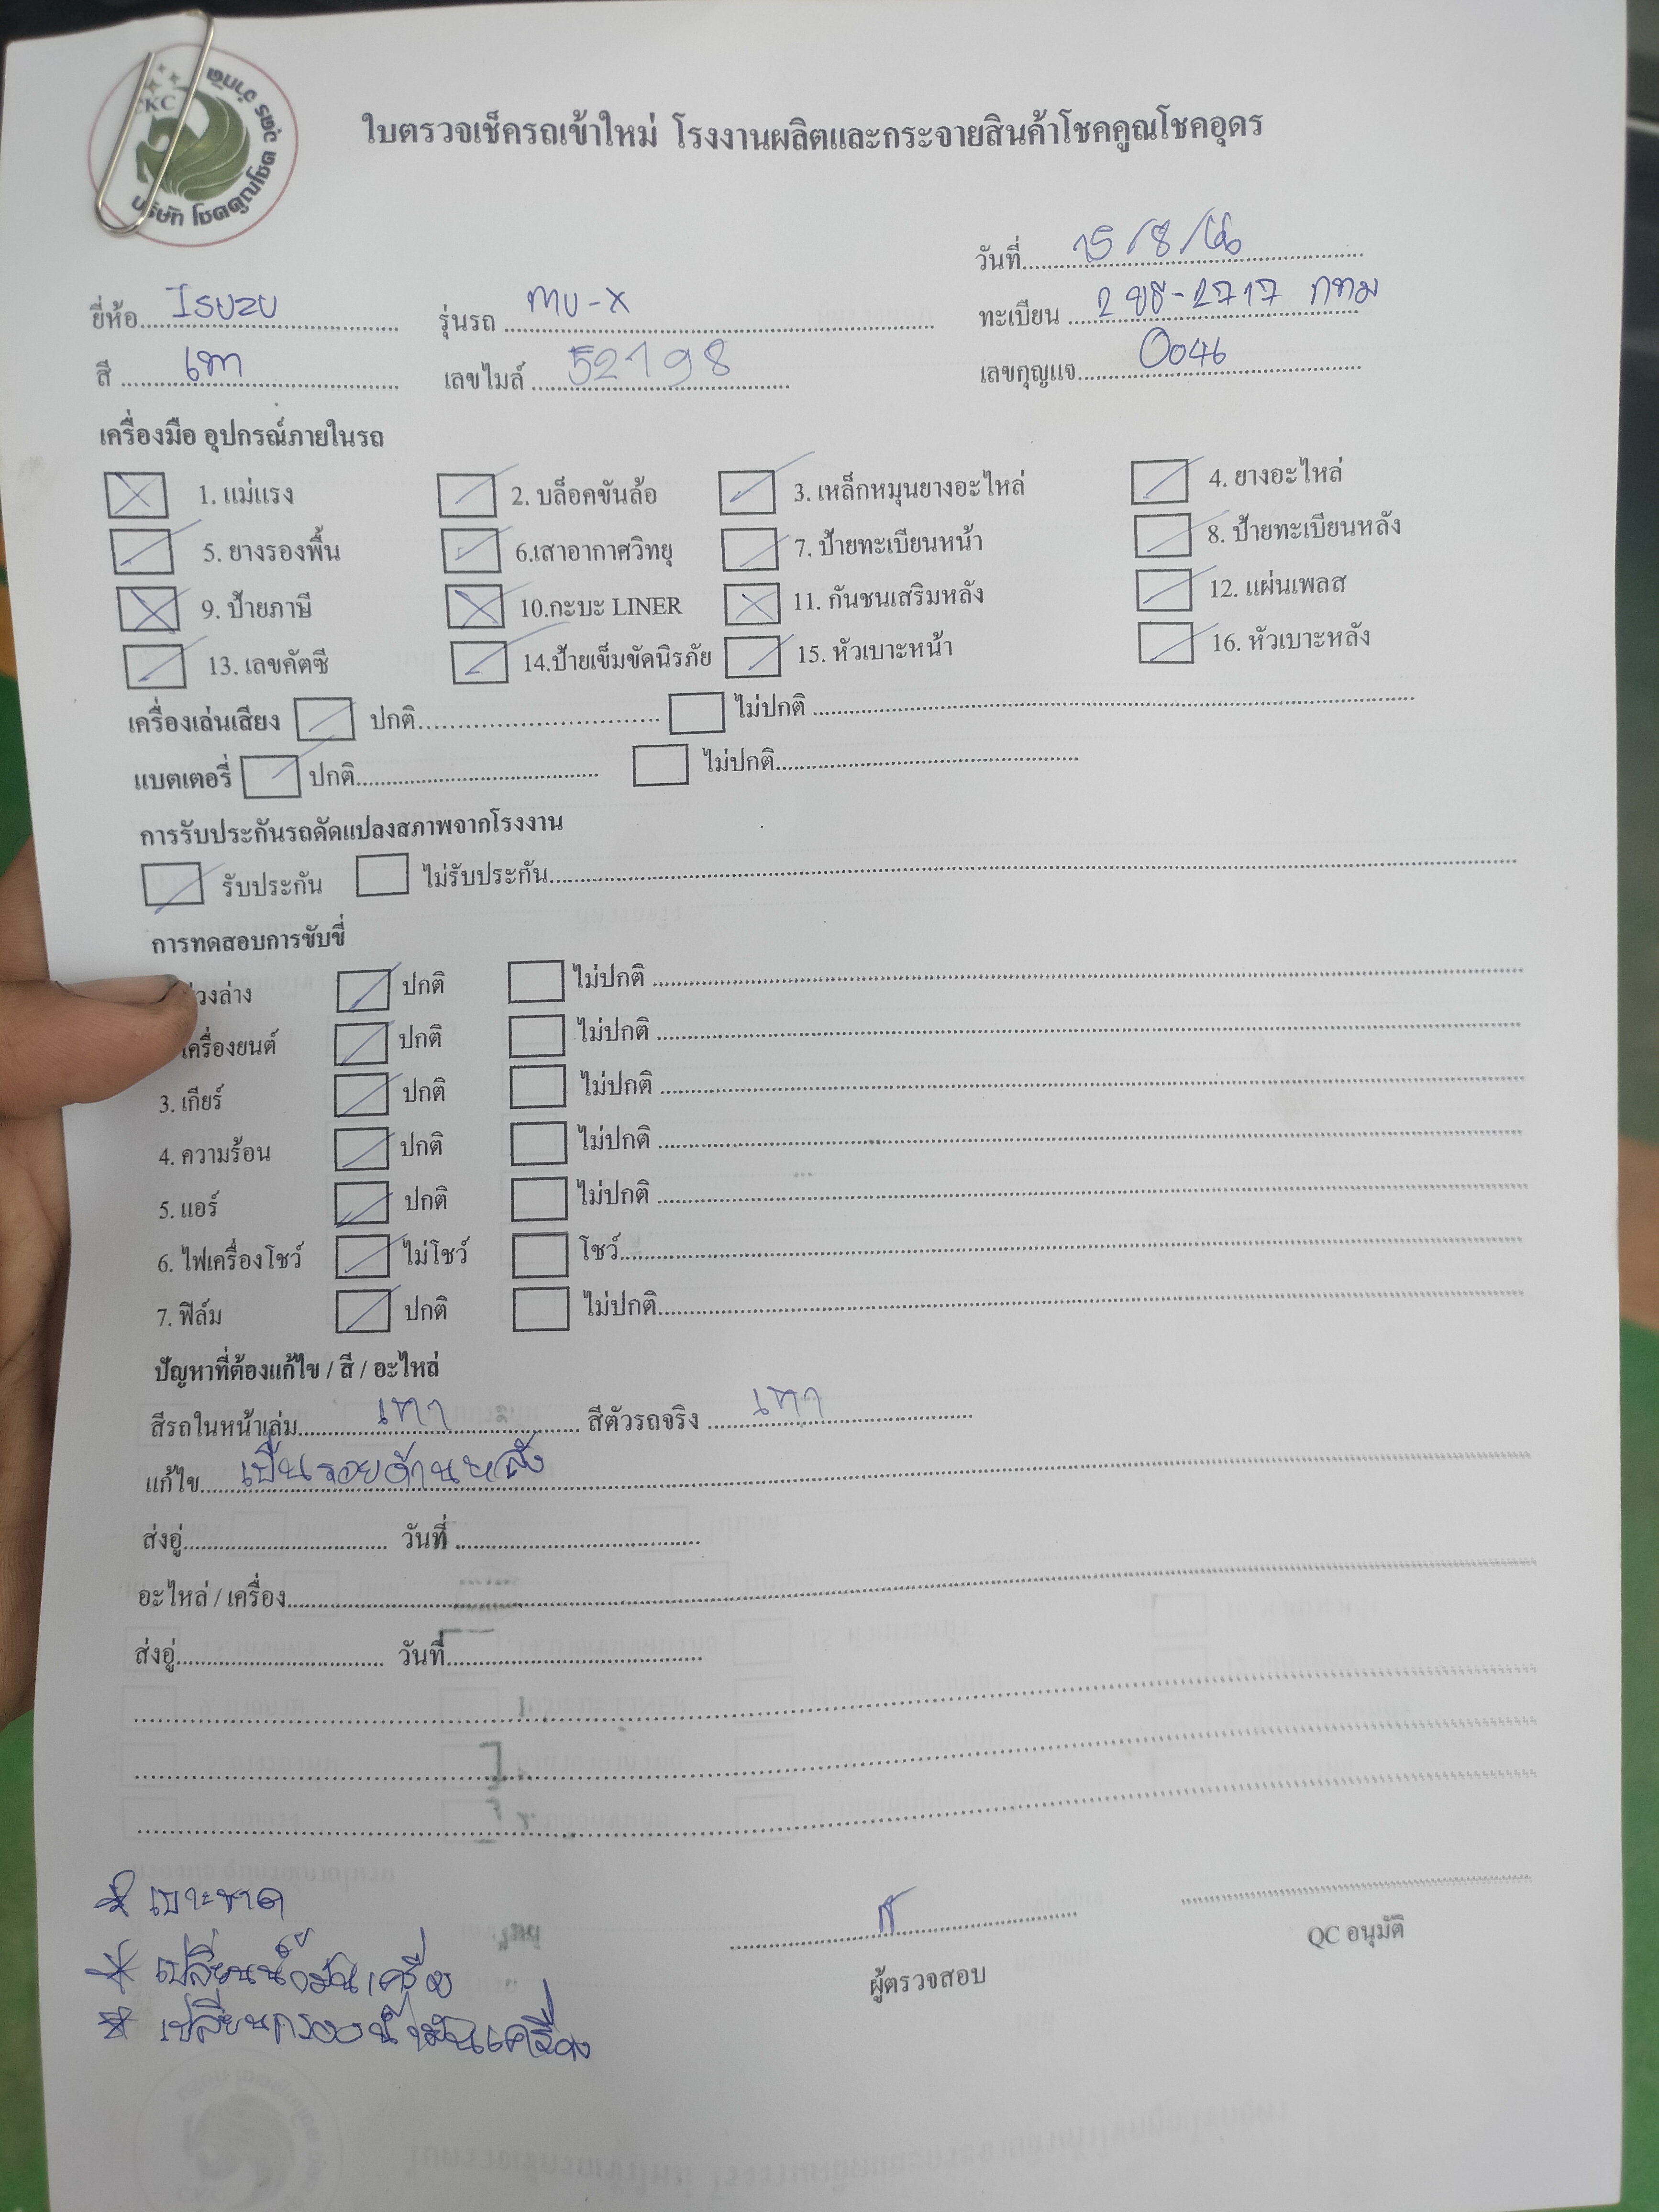 CKC
บริษัท โชคคูณโชค
ใบตรวจเช็ครถเข้าใหม่ โรงงานผลิตและกระจายสินค้าโชคคูณโชคอุดร
วันที่ 15/8/66
ยี่ห้อ Isuzu รุ่นรถ mu-x ทะเบียน 2 ขธ-2717 กทม
สี เทา เลขไมล์ 52198 เลขกุญแจ 0046
เครื่องมือ อุปกรณ์ภายในรถ
1. แม่แรง 2. บล็อคขันล้อ 3. เหล็กหมุนยางอะไหล่ 4. ยางอะไหล่
5. ยางรองพื้น 6.เสาอากาศวิทยุ 7. ป้ายทะเบียนหน้า 8. ป้ายทะเบียนหลัง
9. ป้ายภาษี 10.กะบะ LINER 11. กันชนเสริมหลัง 12. แผ่นเพลส
13. เลขคัตซี 14.ป้ายเข็มขัดนิรภัย 15. หัวเบาะหน้า 16. หัวเบาะหลัง
เครื่องเล่นเสียง ปกติ ไม่ปกติ
แบตเตอรี่ ปกติ ไม่ปกติ
การรับประกันรถดัดแปลงสภาพจากโรงงาน
รับประกัน ไม่รับประกัน
การทดสอบการขับขี่
่วงล่าง ปกติ ไม่ปกติ
เครื่องยนต์ ปกติ ไม่ปกติ
3. เกียร์ ปกติ ไม่ปกติ
4. ความร้อน ปกติ ไม่ปกติ
5. แอร์ ปกติ ไม่ปกติ
6. ไฟเครื่องโชว์ ไม่โชว์ โชว์
7. ฟิล์ม ปกติ ไม่ปกติ
ปัญหาที่ต้องแก้ไข / สี / อะไหล่
สีรถในหน้าเล่ม เทา สีตัวรถจริง เทา
แก้ไข เป็นรอยด้านหลัง
ส่งอู่ วันที่
อะไหล่ / เครื่อง
ส่งอู่ วันที่
ผู้ตรวจสอบ QC อนุมัติ
* เบาะขาด
* เปลี่ยนน้ำมันเครื่อง
* เปลี่ยนกรองน้ำมันเครื่อง